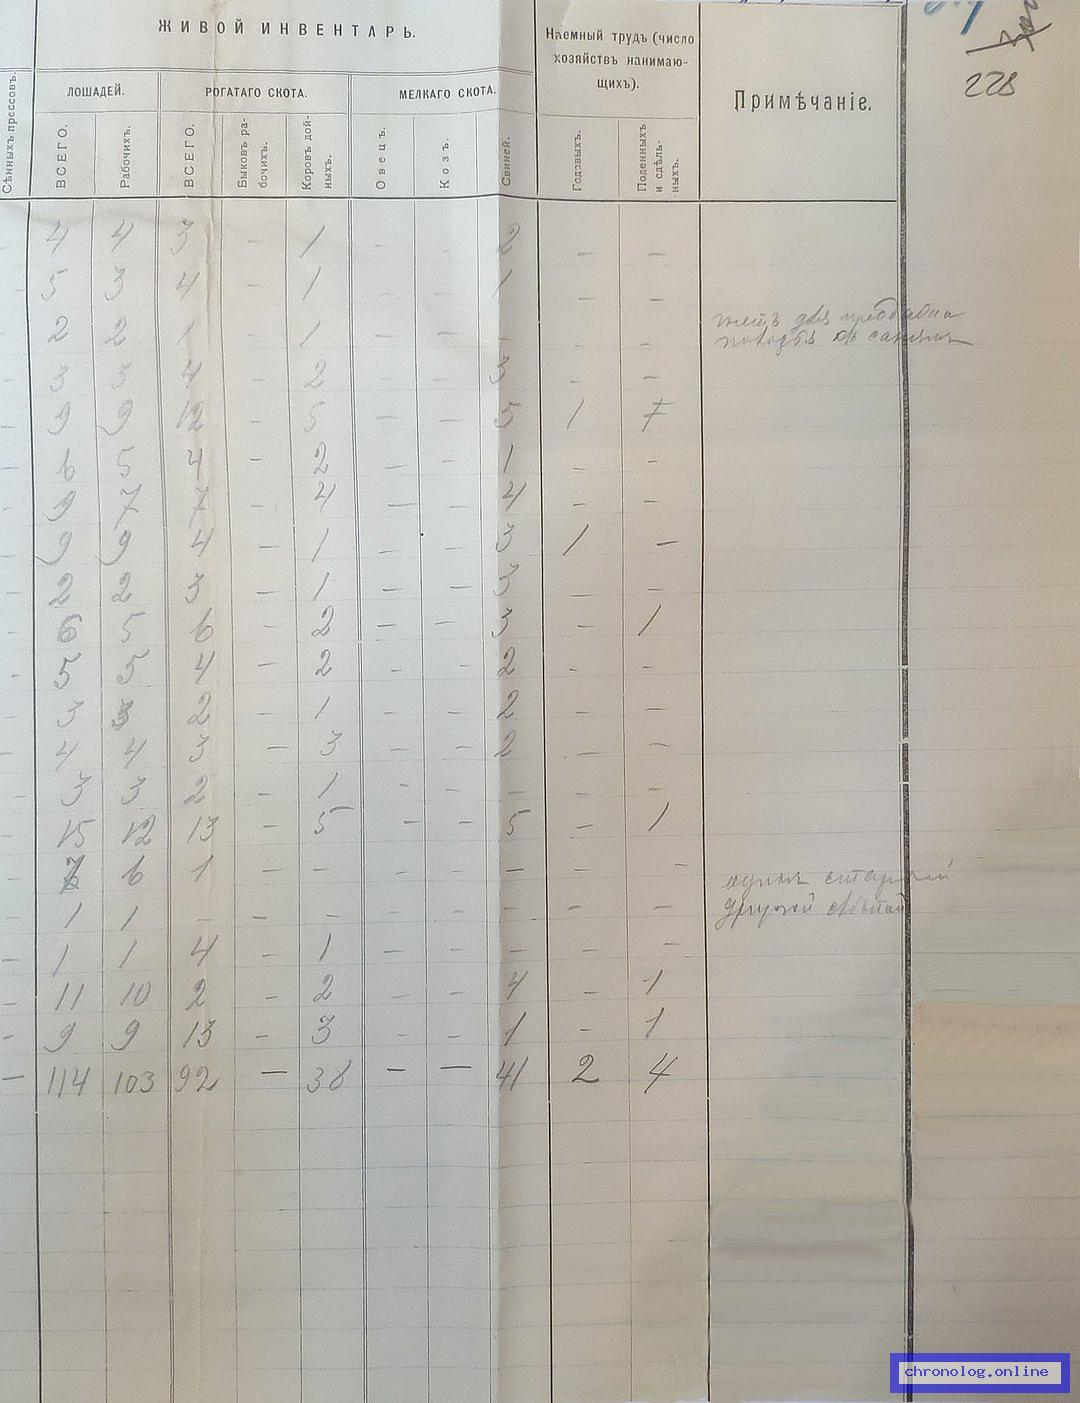 228
ЖИВОЙ ИНВЕНТАРЬ.
Наемный трудъ (число
хозяйствъ нанимаю-
щихъ).
Примѣчаніе.
ЛОШАДЕЙ. РОГАТАГО СКОТА. МЕЛКАГО СКОТА.
Сѣнныхъ прессовъ. ВСЕГО. Рабочихъ. ВСЕГО. Быковъ ра-бочихъ. Коровъ дой-ныхъ. Овецъ. Козъ. Свиней. Годовыхъ. Поденныхъ и сдѣль-ныхъ.
- 4 4 3 - 1 - - 2 - -
- 5 3 4 - 1 - - 1 - -
- 2 2 1 - 1 - - - - -
- 3 3 4 - 2 - - 3 - -
- 9 9 12 - 5 - - 5 1 7
- 6 5 4 - 2 - - 1 - -
- 9 7 7 - 4 - - 4 - -
- 9 9 4 - 1 - - 3 1 -
- 2 2 3 - 1 - - 3 - -
- 6 5 6 - 2 - - 3 - 1
- 5 5 4 - 2 - - 2 - -
- 3 3 2 - 1 - - 2 - -
- 4 4 3 - 3 - - 2 - -
- 3 3 2 - 1 - - - - -
- 15 12 13 - 5 - - 5 - 1
- 6 1 - - - - - - - старый
- 1 1 - - - - - - - - другой слѣпой
- 1 1 4 - 1 - - - - -
- 11 10 2 - 2 - - 4 - 1
- 9 9 13 - 3 - - 1 - 1
- 114 103 92 - 38 - - 41 2 4
chronolog.online